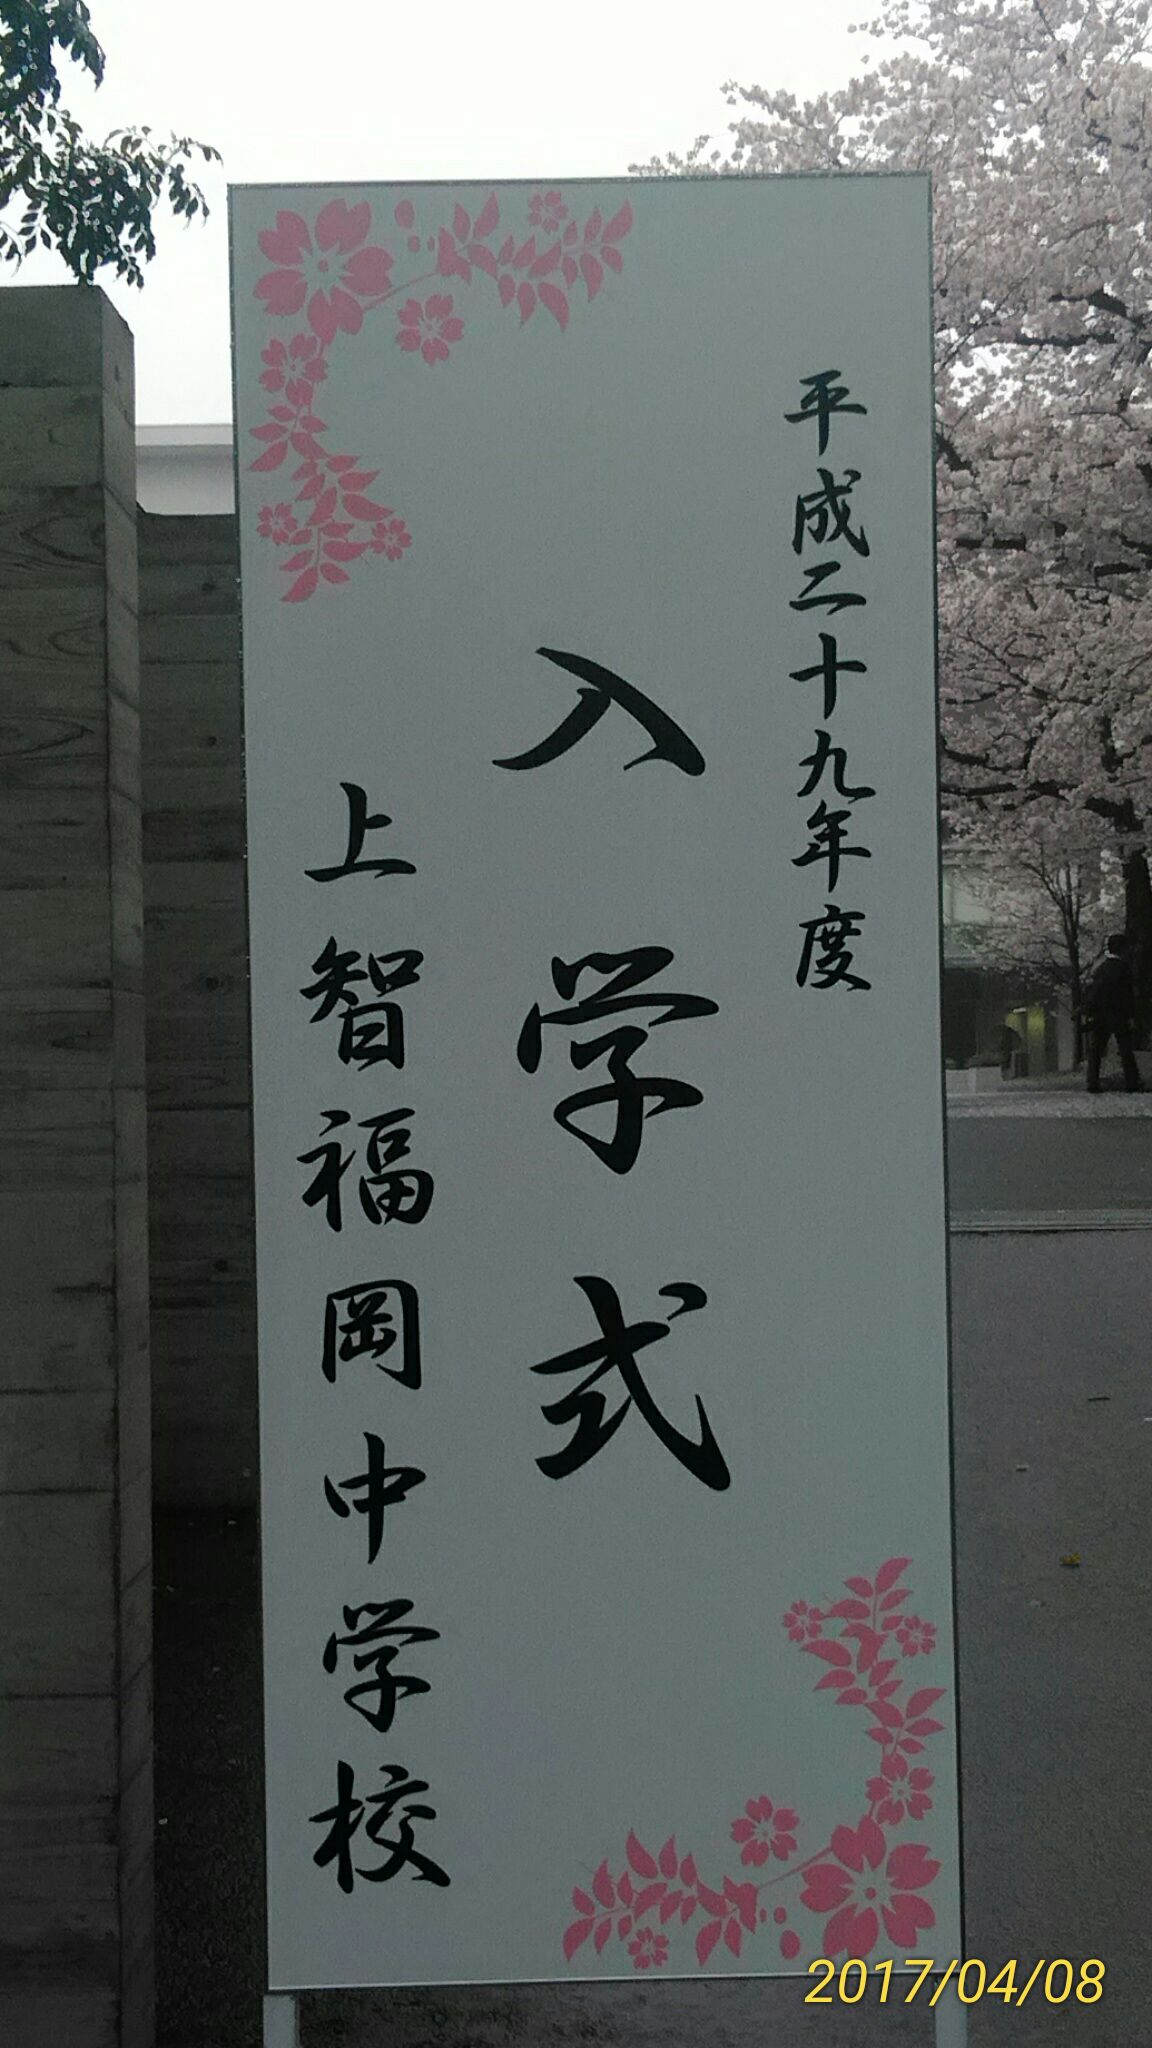 平成二十九年度
入学式
上智福岡中学校
2017/04/08